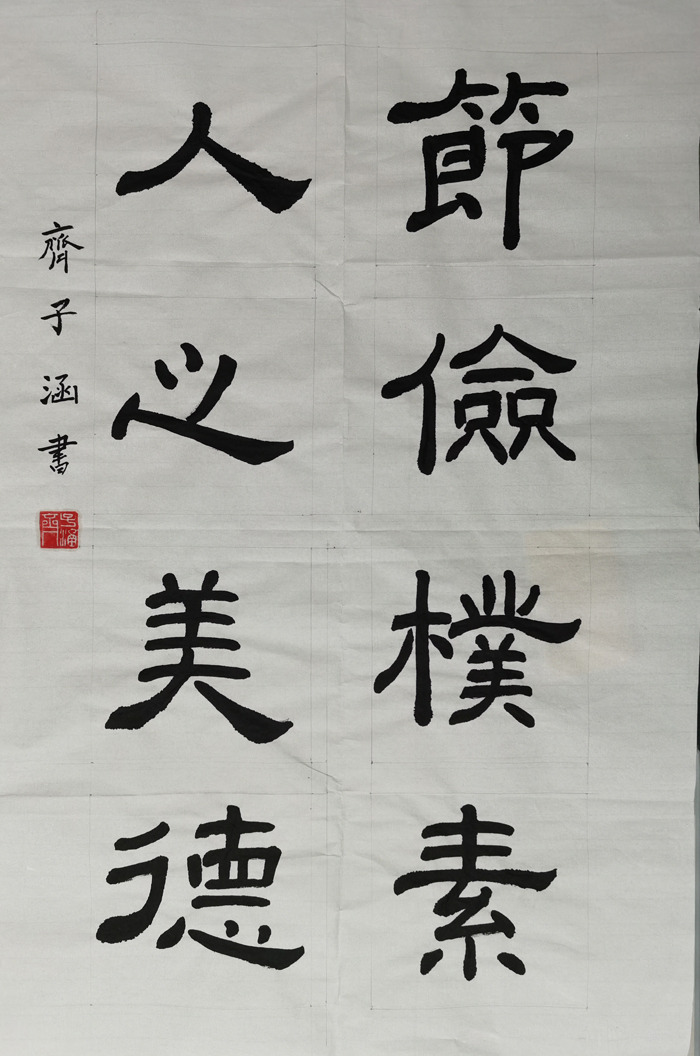 節儉樸素
人之美德
齊子涵書